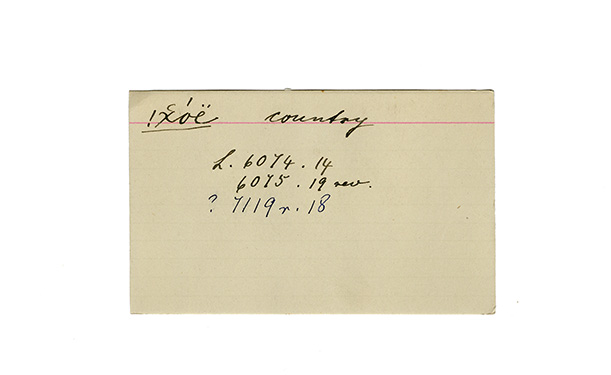 !x̌óë country
L. 6074 . 14
6075 . 19 rev.
? 7119 r. 18